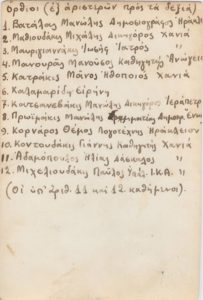 Όρθιοι (εξ αριστερών προς τα δεξιά)
1. Βατάλας Μανώλης Δημοσιογράφος Ηράκλει
2. Μαθιουδάκης Μιχάλης Δικηγόρος Χανιά
3. Μαυριγιαννάκης Ιωσήφ Ιατρός "
4. Μανουράς Μανούσος Καθηγητής Ανώγεια
5. Κατράκης Μάνος Ηθοποιός Χανιά
6. Καλαμαρίδη Ειρήνη
7. Κουτσανεβάκης Μανώλης Δικηγόρος Ιεράπετρ
8. Πρωϊμάκις Μανώλης Γραμματεύς Δημοτ.
9. Κορνάρος Θέμος Λογοτέχνης Ηράκλειον
10. Κοντουδάκης Γιάννης Καθηγητής Χανιά
11. Αδαμόπουλος Ηλίας Δάσκαλος "
12. Μιχελιουδάκις Παύλος Υπάλ. Ι.Κ.Α. "
(Οι υπ' αριθ. 11 και 12 καθήμενοι).